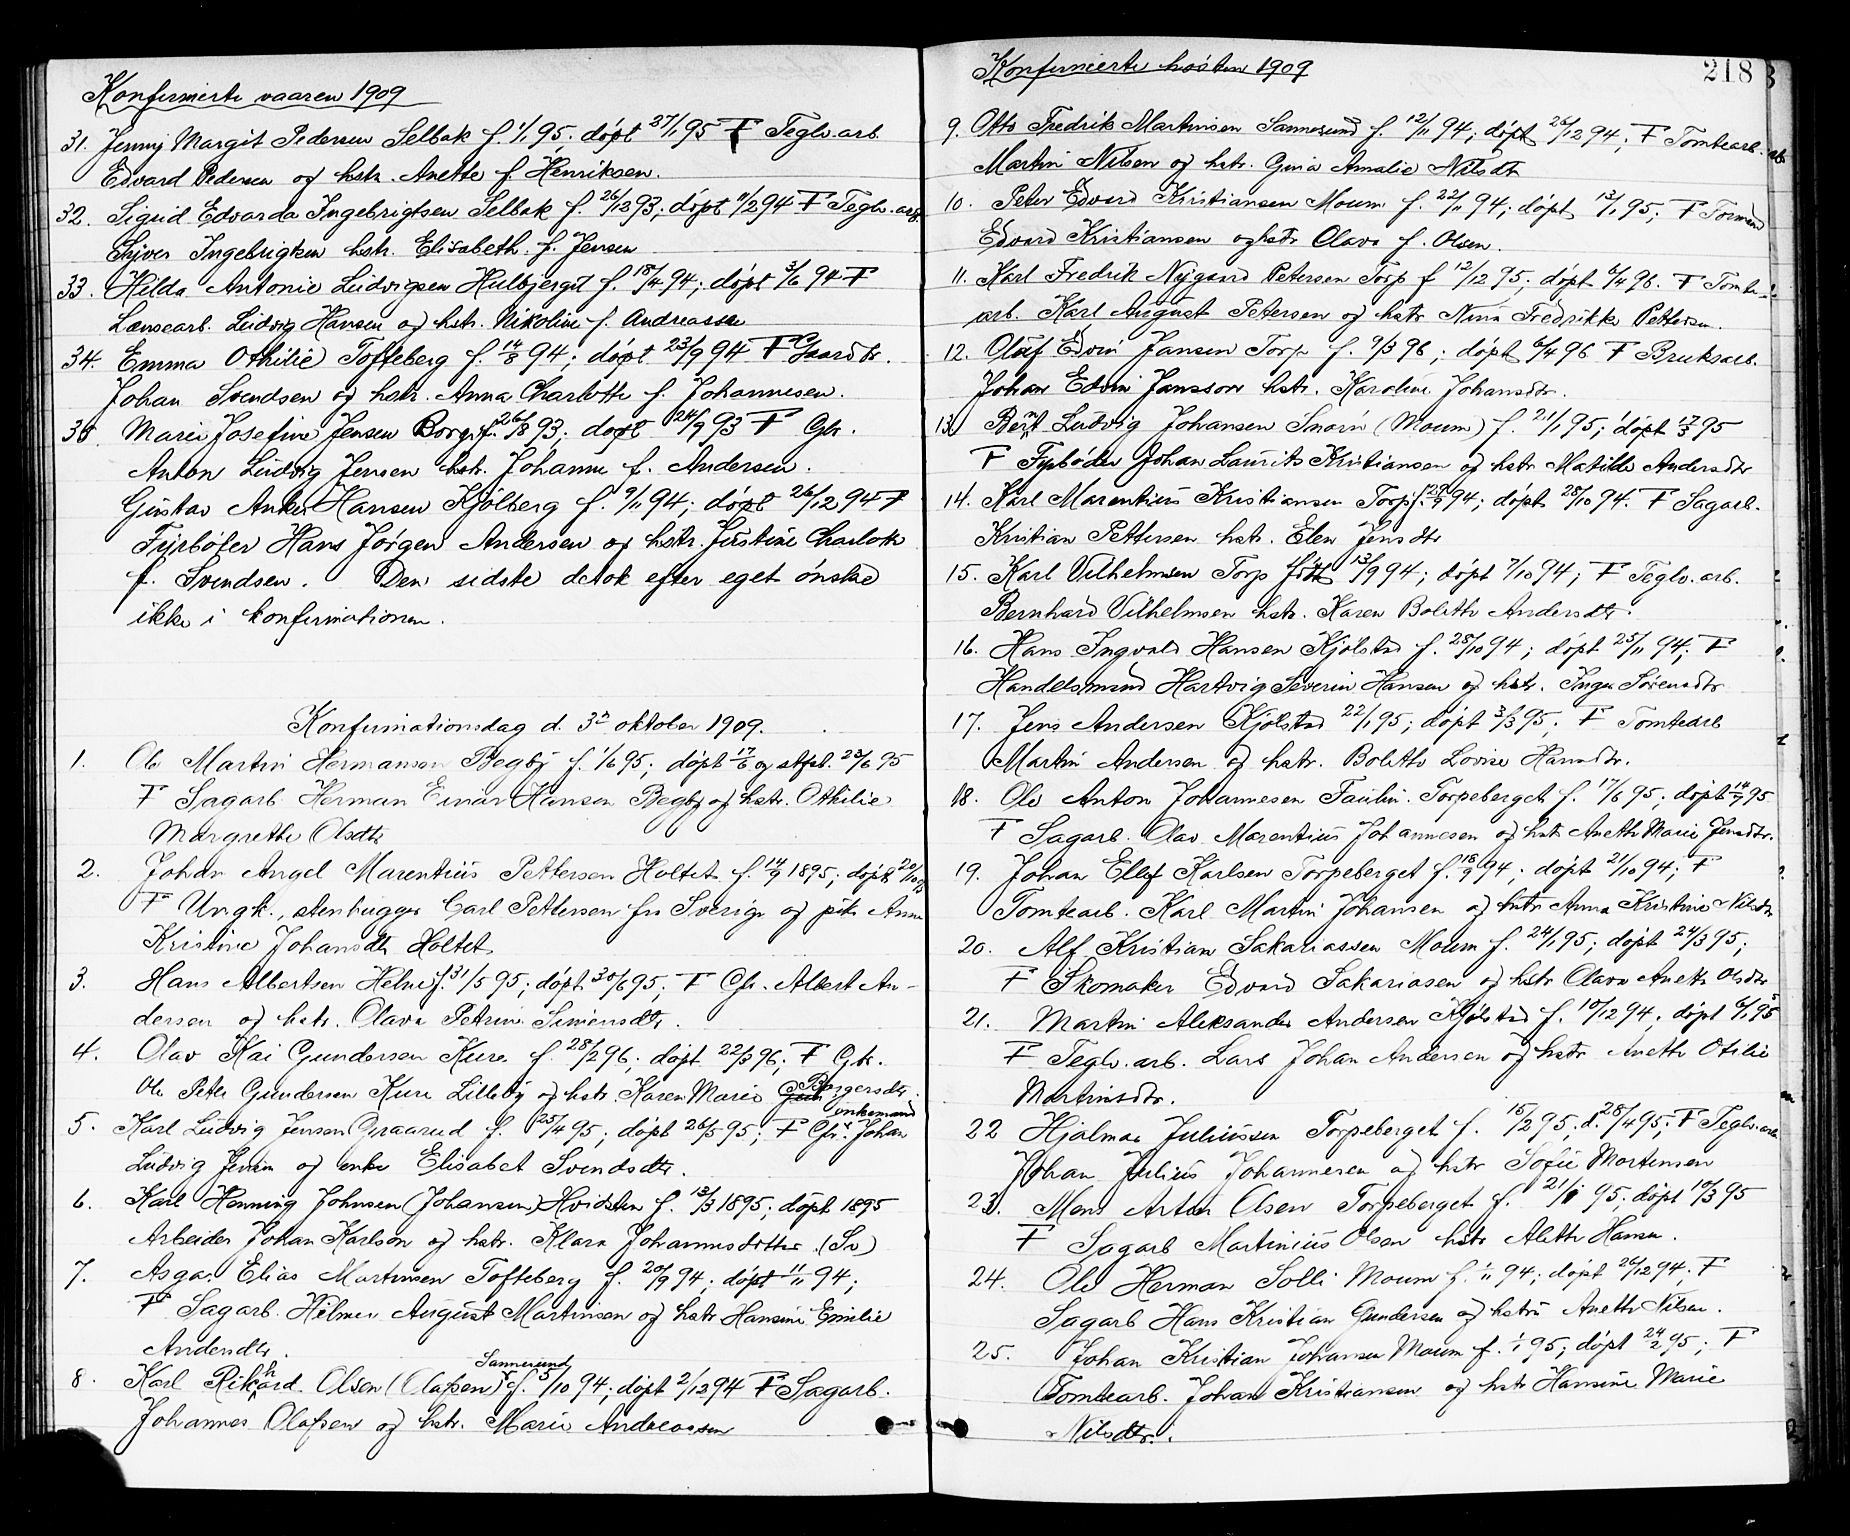 Konfirmerte vaaren 1909
31. Jenny Margit Pedersen Selbak f. 1/1 95; døpt 27/1 95 F Teglv.arb.
Edvard Pedersen og hstr. Anette f. Henriksen.
32. Sigrid Edvarda Ingebrigtsen Selbak f. 26/12 93; døpt 11/2 94 F Teglv.arb.
Syver Ingebrigtsen hstr. Elisabeth f. Jensen
33. Hilda Antonie Ludvigsen Hulbjerget f. 18/4 94; døpt 3/6 94 F
Lænsearb. Ludvig Hansen og hstr. Nikoline f. Andreasse
34. Emma Othilie Tofteberg f. 14/8 94; døpt 23/9 94 F Gaardbr.
Johan Svendsen og hstr. Anna Charlotte f. Johannesen.
35 Marie Josefine Jensen Borge f. 26/8 93; døpt 24/9 93 F Gbr.
Anton Ludvig Jensen hstr. Johanne f. Andersen.
Gustav Anker Hansen Kjølberg f. 9/11 94; døpt 26/12 94 F
Fyrbøter Hans Jørgen Andersen og hstr. Justine Charlotte
f. Svendsen. Den sidste deltok efter eget ønske
ikke i konfirmationen.
Konfirmationsdag d. 3n oktober 1909.
1. Ole Martin Hermansen Begby f. 1/6 95; døpt 17/6 og stfst. 23/6 95
F Sagarb. Herman Einar Hansen Begby og hstr. Othilie
Margrethe Olsdtr
2. Johan Angel Marentius Pettersen Holtet f. 14/9 1895; døpt 20/10 95
F Ungk., stenhugger Carl Pettersen fra Sverige og pike Anna
Kristine Johansdtr Holtet
3. Hans Albertsen Helne f. 31/5 95; døpt 30/6 95; F Gbr. Albert An-
dersen og hstr. Olava Petrine Simensdtr.
4. Olav Kai Gundersen Kure f. 28/2 96; døpt 22/3 96; F Gbr.
Ole Peter Gundersen Kure Lilleby og hstr. Karen Marie Gun Borgersdtr.
5. Karl Ludvig Jensen Graarud f. 25/4 95; døpt 26/5 95; F Gbr. enkemand Johan
Ludvig Jensen og enke Elisabet Svendsdtr.
6. Karl Henning Johnsen (Johansen) Hvidsten f. 13/3 1895; døpt 1895
Arbeider Johan Karlson og hstr. Klara Johannesdotter (Sv)
7. Asgar Elias Martinsen Tofteberg f. 20/9 94; døpt 11/11 94;
F Sagarb. Hilmer August Martinsen og hstr Hansine Emilie
Andersdtr.
8. Karl Rikhard Olsen (Olafsen) Sannesund f. 5/10 94; døpt 2/12 94 F Sagarb.
Johannes Olafsen og hstr. Marie Andreassen
Konfirmerte høsten 1909
218
9. Otto Fredrik Martinsen Sannesund f. 12/11 94; døpt 26/12 94; F Tomtearb.
Martin Nilsen og hstr. Gina Amalie Nilsdtr
10. Peter Edvard Kristiansen Moum f. 22/11 94; døpt 13/1 95; F Formand
Edvard Kristiansen og hstr Olava f. Olsen.
11. Karl Fredrik Nygaard Petersen Torp f 12/12 95; døpt 6/4 96. F Tomte-
arb. Karl August Pettersen og hstr Nina Fredrikke Pettersen.
12. Oluf Edvin Jansen Torp f. 9/3 96; døpt 6/4 96 F Bruksarb.
Johan Edvin Jansson hstr. Karoline Johansdtr.
13. Bernt Ludvig Johansen Snorri (Moum) f. 21/1 95; døpt 17/3 95
F Fyrbøder Johan Laurits Kristiansen og hstr Matilde Andersdtr
14. Karl Marentius Kristiansen Torp f. 29/9 94; døpt 28/10 94. F Sagarb.
Kristian Pettersen hstr. Elen Jensdtr
15. Karl Vilhelmsen Torp født 13/9 94; døpt 7/10 94; F Teglv.arb.
Bernhard Vilhelmsen hstr. Karen Bolette Andersdtr.
16. Hans Ingvald Hansen Kjølstad f. 28/10 94; døpt 25/11 94; F
Handelsmand Hartvig Severin Hansen og hstr. Inger Sørensdtr
17. Jens Andersen Kjølstad 22/1 95; døpt 3/3 95; F Tomtearb
Martin Andersen og hstr. Bolette Lovise Hansdtr.
18. Ole Anton Johannesen Faulin. Torpeberget f. 17/6 95; døpt 14/7 95
F Sagarb. Olav Marentius Johannesen og hstr Anette Marie Jensdtr.
19. Johan Ellef Karlsen Torpeberget f. 18/9 94; døpt 21/10 94; F
Tomtearb. Karl Martin Johansen og hstr Anna Kristine Nilsdtr
20. Alf Kristian Sakariassen Moum f. 24/1 95; døpt 24/3 95;
F Skomaker Edvard Sakariasen og hstr Olava Anette Olsdtr
21. Martin Aleksander Andersen Kjølstad f. 10/12 94; døpt 6/1 95
F Teglv.arb. Lars Johan Andersen og hstr Anette Otilie
Martinsdtr.
22 Hjalmar Juliussen Torpeberget f. 15/2 95; d. 28/4 95; F Teglv.arb
Johan Julius Johannesen og hstr Sofie Mortensen
23. Mons Artur Olsen Torpeberget f. 21/1 95; døpt 10/3 95
F Sagarb Martinius Olsen hstr Alette Hansen.
24. Ole Herman Solli Moum f. 1/11 94; døpt 26/12 94; F
Sagarb Hans Kristian Gundersen og hstru Anette Nilsen.
25. Johan Kristian Johansen Moum f. 1/1 95; døpt 24/2 95; F
Tomtearb. Johan Kristiansen og hstr Hansine Marie
Nilsdtr.